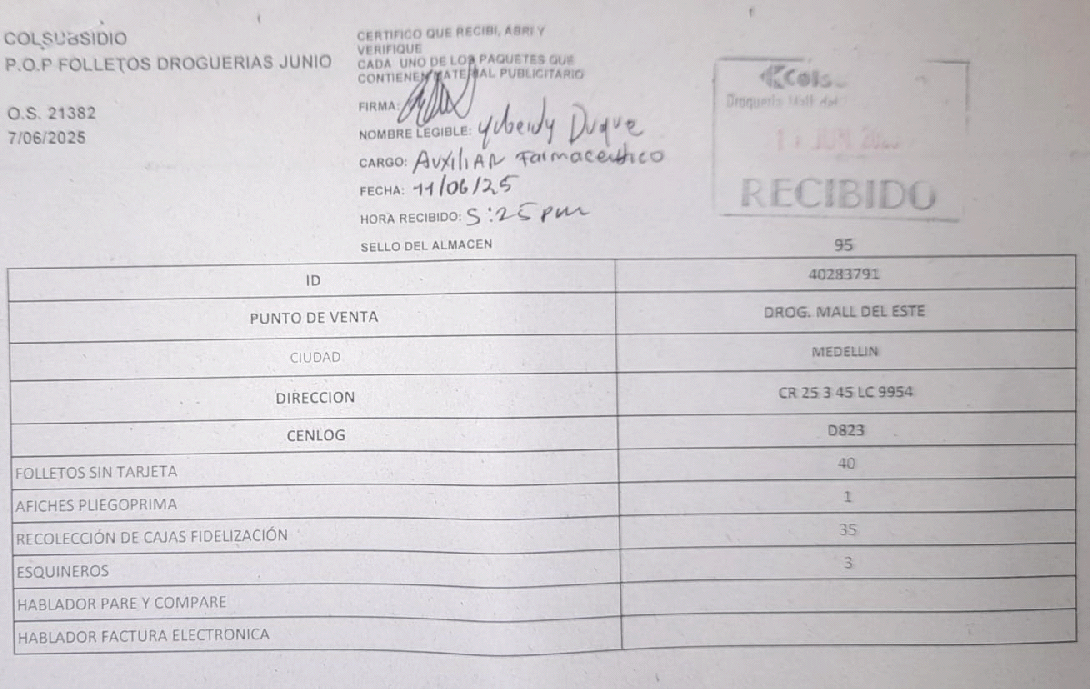 COLSUBSIDIO
P.O.P FOLLETOS DROGUERIAS JUNIO
O.S. 21382
7/06/2025
CERTIFICO QUE RECIBI, ABRI Y
VERIFIQUE
CADA UNO DE LOS PAQUETES QUE
CONTIENEN MATERIAL PUBLICITARIO
FIRMA:
NOMBRE LEGIBLE: Yubeidy Duque
CARGO: AUXILIAR Farmaceutico
FECHA: 11/06/25
HORA RECIBIDO: 5:25 pm
SELLO DEL ALMACEN
Cols
Drogueria Mall del
11 JUN 202
RECIBIDO
95
ID 40283791
PUNTO DE VENTA DROG. MALL DEL ESTE
CIUDAD MEDELLIN
DIRECCION CR 25 3 45 LC 9954
CENLOG D823
FOLLETOS SIN TARJETA 40
AFICHES PLIEGOPRIMA 1
RECOLECCIÓN DE CAJAS FIDELIZACIÓN 35
ESQUINEROS 3
HABLADOR PARE Y COMPARE
HABLADOR FACTURA ELECTRONICA